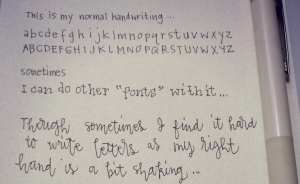 This is my normal handwriting...
abcdefghijklmnopqrstuvwxyz
ABCDEFGHIJKLMNOPQRSTUVWXYZ
sometimes
I can do other "fonts" with it...
Though sometimes I find it hard
to write letters as my right
hand is a bit shaking...